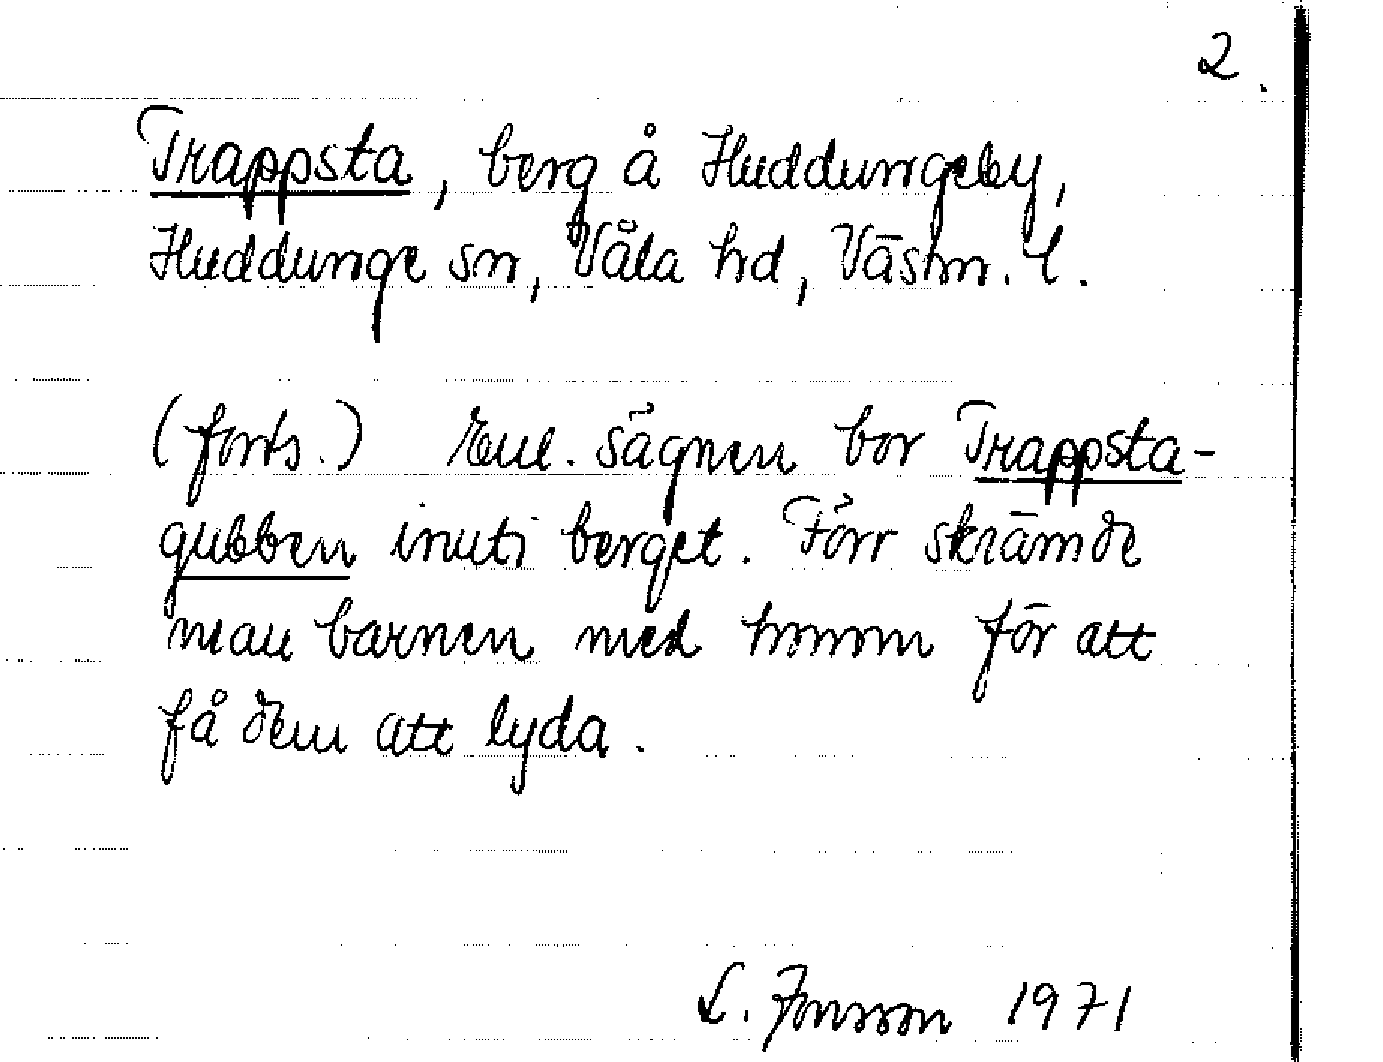 2.
Trappsta, berg å Huddungeby,
Huddunge sn, Våla hd, Västm. l.
(forts.) Enl. sägnen bor Trappsta-
gubben inuti berget. Förr skrämde
man barnen med honom för att
få dem att lyda.
L. Jonsson 1971